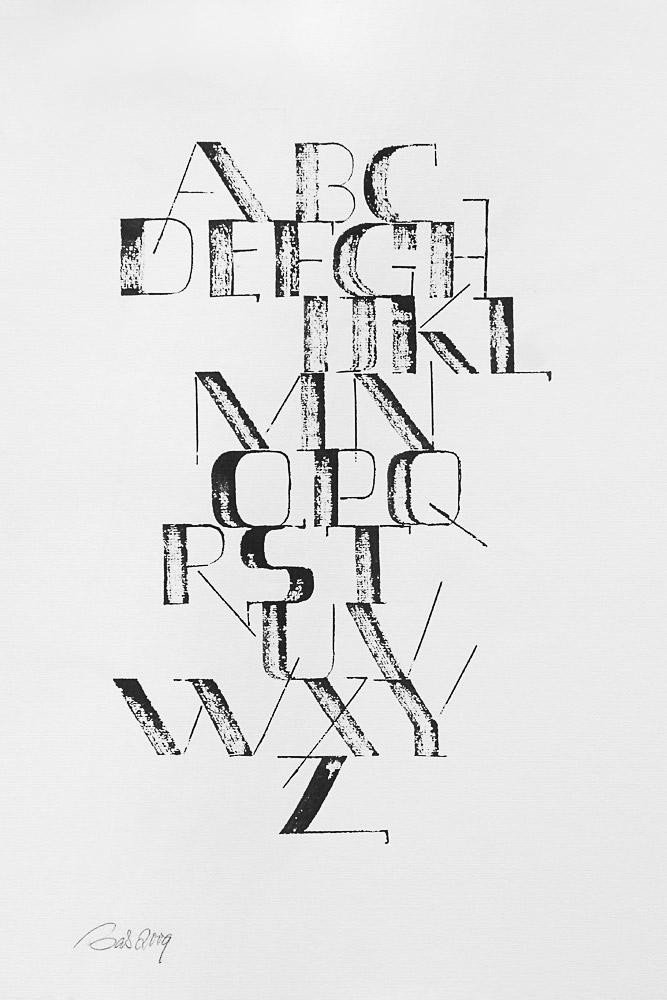 ABC
DEFGH
IJKL
MN
OPQ
RST
UV
WXY
Z
2009